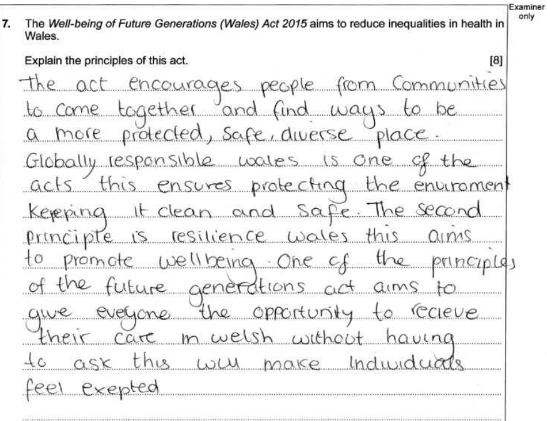 Examiner
only
7. The Well-being of Future Generations (Wales) Act 2015 aims to reduce inequalities in health in
Wales.
Explain the principles of this act. [8]
The act encourages people from Communities
to come together and find ways to be
a more protected, safe, diverse place.
Globally responsible wales is one of the
acts this ensures protecting the enuroment
keepring it clean and safe. The second
principle is resilience wales this aims
to promote wellbeing. One of the principles
of the future generations act aims to
give eveyone the opportunity to recieve
their care in welsh without having
to ask this will make Individuals
feel exepted